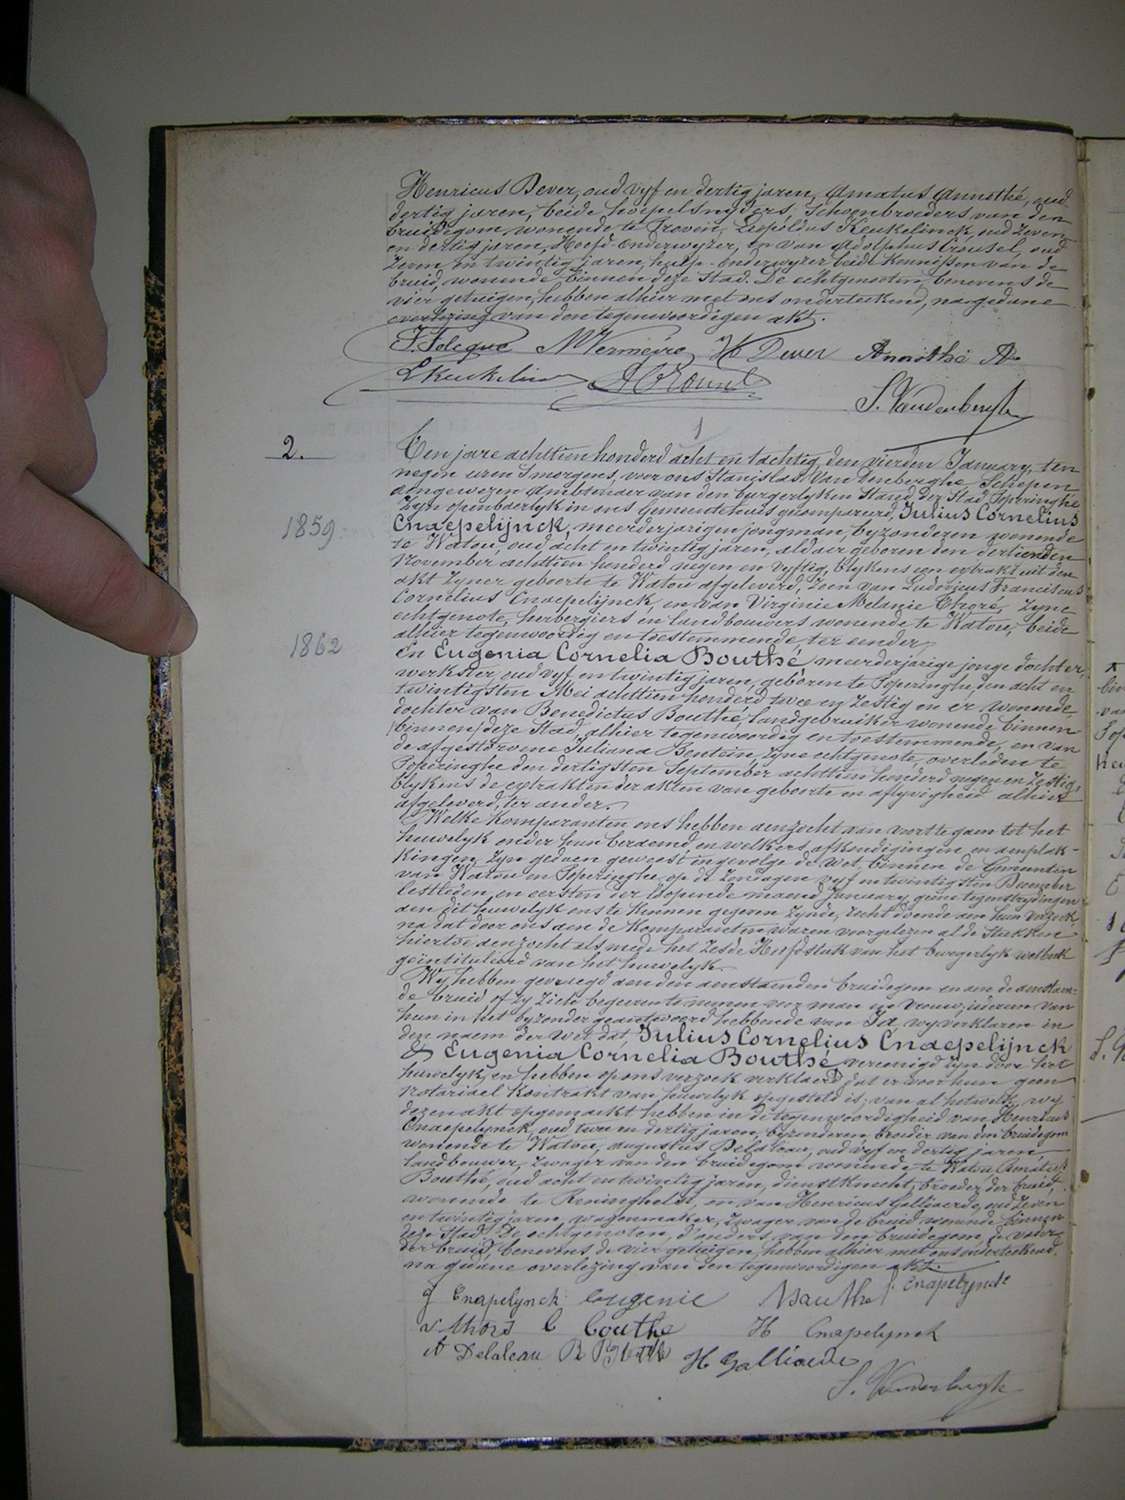 Henricus Dever, oud vyf en dertig jaren, Amatus Annothé, oud
dertig jaren, beide hoepelsnyders, Schoonbroeders van den
bruidegom, wonende te Proven, Leopoldus Keukelinck, oud zeven
en dertig jaren, Hoofd-onderwyzer, en van Adolphus Crousel, oud
zeven en twintig jaren, hulp-onderwyzer beide kennissen van de
bruid, wonende binnen deze stad. De echtgenooten, benevens de
vier getuigen, hebben alhier met ons onderteekend, na gedane
overlezing van den tegenwoordigen akt.
N Vermeire H Dever Annothé A
S. Vandenberghe
2. Ten jare achttien honderd acht en tachtig, den vierden January, ten
negen uren 's morgens, voor ons Stanislas Van denberghe, Schepen
aengewezen Ambtenaer van den burgerlyken Stand der Stad Poperinghe
zyn openbaerlyk in ons Gemeentehuis gecompareerd, Julius Cornelius
1859 Cnaepelijnck, meerderjarigen jongman, byzonderen, wonende
te Watou, oud acht en twintig jaren, aldaer geboren den dertienden
November achttien honderd negen en vyftig, blykens een extrakt uit den
akt zyner geboorte te Watou afgeleverd, zoon van Ludovicus Franciscus
Cornelius Cnaepelijnck, en van Virginie Melanie Thoré, zyne
echtgenote, herbergiers en landbouwers wonende te Watou, beide
alhier tegenwoordig en toestemmende, ter eender,
1862 En Eugenia Cornelia Bouthé, meerderjarige jonge dochter,
werkster, oud vyf en twintig jaren, geboren te Poperinghe, den acht en
twintigsten Mei achttien honderd twee en zestig en er wonende,
dochter van Benedictus Bouthé, landgebruiker wonende binnen
binnen deze Stad, alhier tegenwoordig en toestemmende, en van
de afgestorvene Juliana Bentein, zyne echtgenote, overleden te
Poperinghe den dertigsten September achttien honderd negen en zestig,
blykens de extrakten der akten van geboorte en aflyvigheid alhier
afgeleverd, ter ander.
Welke komparanten ons hebben aenzocht aen voort te gaen tot het
huwelyk onder hun beraemd, en welkers afkondigingen en aenplak-
kingen zyn gedaen geweest ingevolge de wet, binnen de Gemeenten
van Watou en Poperinghe, op de Zondagen vyf en twintigsten December
lestleden, en eersten der loopende maend January, geene tegenstrydingen
aen dit huwelyk ons te kennen gegeven zynde, recht doende aen hun verzoek,
na dat door ons aen de komparanten waren voorgelezen al de stukken
hiertoe aenzocht als mede het zesde Hoofdstuk van het burgerlyk wetboek
geïntituleerd van het huwelyk.
Wy hebben gevraegd aen den aenstaenden bruidegom en aen de aenstaen-
de bruid of zy zich begeerente nemen voor man en vrouw; iederen van
hun in het byzonder geantwoord hebbende van Ja, wy verklaren in
den naem der Wet dat, Julius Cornelius Cnaepelijnck
& Eugenia Cornelia Bouthé, vereenigd zyn door het
huwelyk, en hebben op ons verzoek verklaerd dat er voor hun geen
Notariael Kontrakt van huwelyk opgesteld is, van al hetwelk wy
dezen akt opgemaekt hebben in de tegenwoordigheid van Henricus
Cnaepelynck, oud twee en dertig jaren, byzonderen, broeder van den bruidegom
wonende te Watou, Augustus Delaleau, oud vyf en dertig jaren
landbouwer, zwager van den bruidegom wonende te Watou,
Bouthé, oud acht en twintig jaren, dienstknecht, broeder der bruid,
wonende te Reninghelst, en van Henricus Galliaerde, oud zeven
en twintig jaren, wagenmaker, zwager van de bruid wonende binnen
deze Stad. De echtgenoten, d'ouders van den bruidegom, de vader
der bruid, benevens de vier getuigen, hebben alhier met ons onderteekend,
na gedane overlezing van den tegenwoordigen akt.
J Cnapelynck Eugenie Bouthé Cnapelynck
v Thore C Bouthe H Cnapelynck
A Delaleau B H Galliaerde
S. Vandenberghe